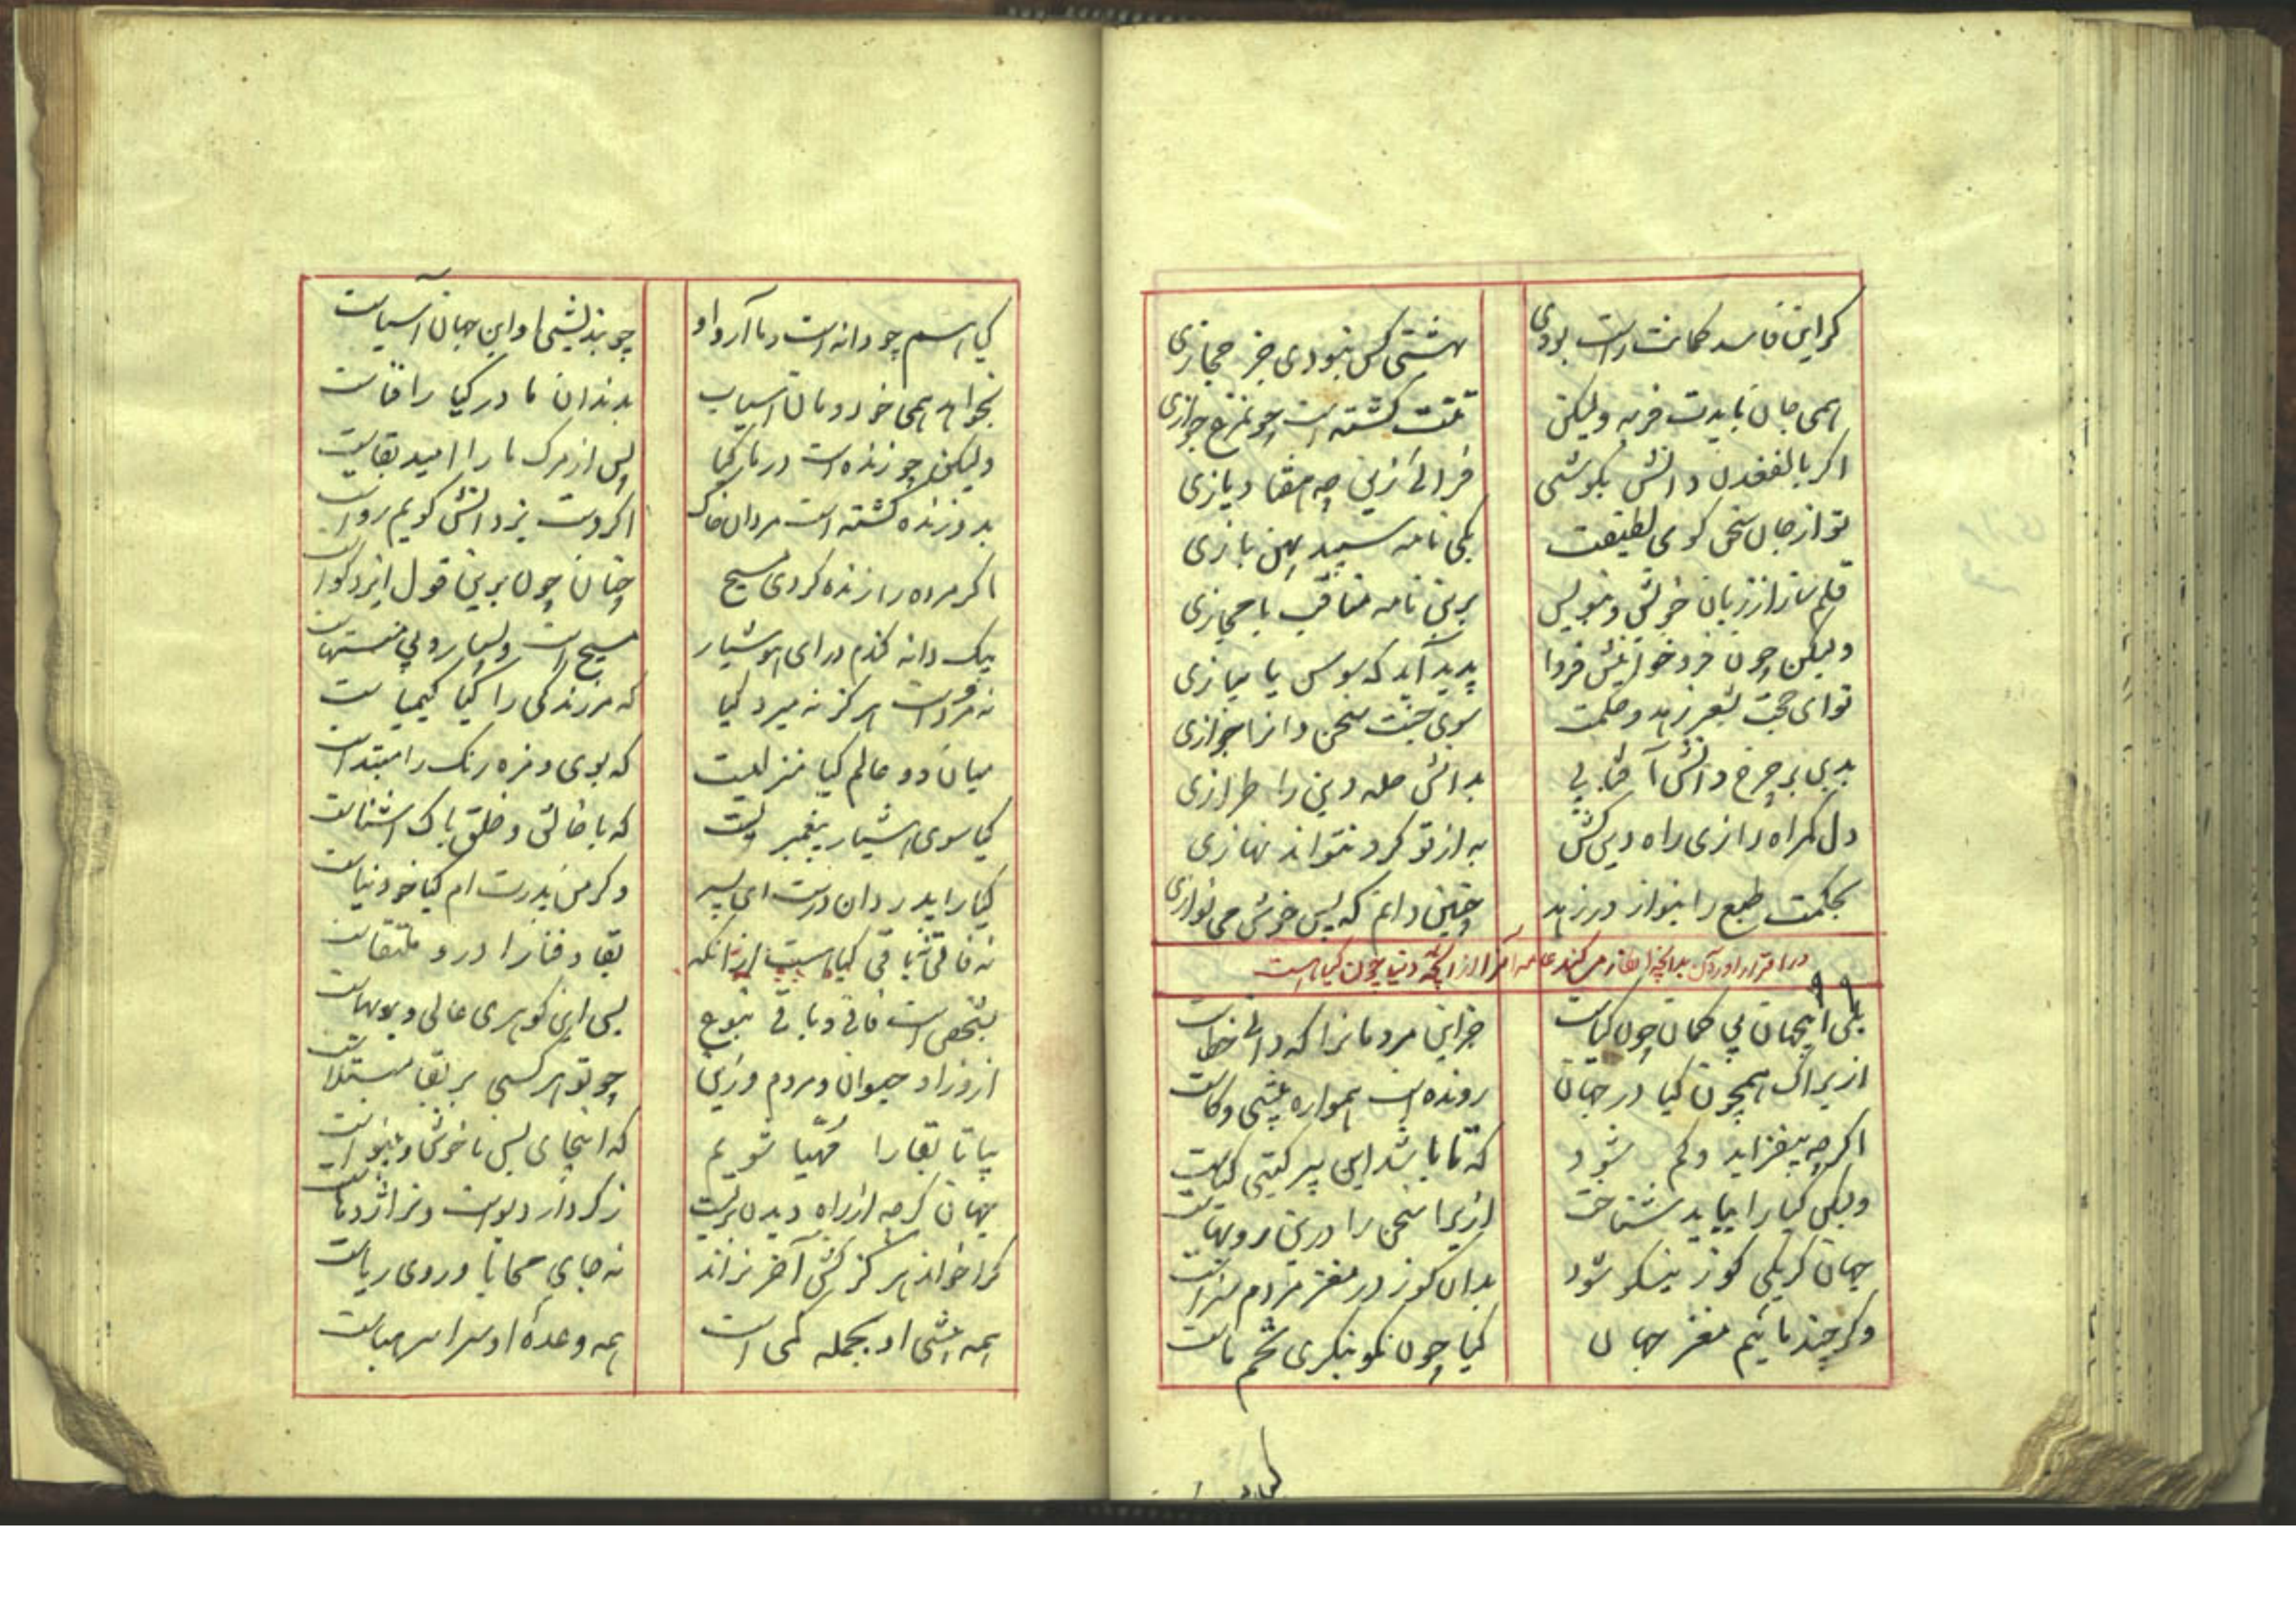 گر این فاسد گمانت راست بودی بهشتی کس نبودی جز حجازی
همی جان بایدت فربه ولیکن تنت گشته است چو نمرغ جوازی
اگر بالفغدن دانش بکوشی فرالی زین چه منقادیازی
تو از جان سخن گوی لطیفت یکی نامه سپید پهن بازی
قلم ساز از زبان خویش و بنویس برین نامه مناقب یا حجازی
ولیکن چون فرو خوانیش فردا پدید آید که سوسن یا پیازی
توای حجت بشعر زهد و حکمت سوی جنت سخن دان را جوازی
بدین بر چرخ دانش آفتابی بدانش حله دین را طرازی
دل گمراه را زی راه دین کش به از تو کرد نتواند نهازی
بحکمت طبع را بنواز در زهد چنین دانم که بس خوش می نوازی
در اقرار آوردن بدانچه آغاز می کند از آنکه دنیا چون گیا است
بلی اینجهان بی گمان چون گیاست جز این مردمان را که دانی خطاست
ازیراک همچون گیا در جهان رونده است همواره بیشی و کاست
اگرچه بیفزاید و کم شود که تا باشد این پیر گیتی گیاست
ولیکن گیا را بباید شناخت ازیرا سخن را درین رویهاست
جهان گر یکی گوز نیکو شود بدان گوز در مغز مردم سزاست
وگر چند مائیم مغز جهان گیا چون نکو بنگری تخم ماست
گیا
گیا اسم چو دانه است و ما آرد او چو بندیشی و این جهان آسیاست
بخواهد همی خورد ومان آسیاب بدندان ما در گیا را فناست
ولیکن چو زنده است در ما گیا پس از مرگ ما را امید بقاست
بدو زنده گشته است مردان خاک اگر دست یزدانش گویم رواست
اگر مرده را زنده کردی مسیح چنان چون برین قول ایزد گواست
بیک دانه گندم در ای هوشیار مسیح است بسیار و بی منتهاست
نه مرده است هرگز نه میرد گیا که مر زندگی را گیا کیمیاست
میان دو عالم گیا منزلیست که بوی و مزه رنگ را مبتداست
گیا سوی هشیار پیغمبر است که با خالق و خلق پاک آشناست
گیا را پدر دان درست ای پسر وگر من پدرت ام گیا خود نیاست
نه فانی نه باقی گیاهست ازانکه بقا و فنا را درو ملتقاست
بشخص است فانی و باقی بنوع پس این گوهری عالی و پربهاست
ازو زاد حیوان و مردم وزین چو تو هر کسی بر بقا مبتلاست
بیا تا بقا را مُهیّا شویم که اینجای بس ناخوش و بینواست
جهان گرچه از راه دیدن پریست ز کردار دیو است و نر اژدهاست
کرا خواند هرگز کش آخر نراند نه جای محابا و روی ریاست
همه بیشی او بجمله کمی است همه وعدهٔ او سراسر هباست